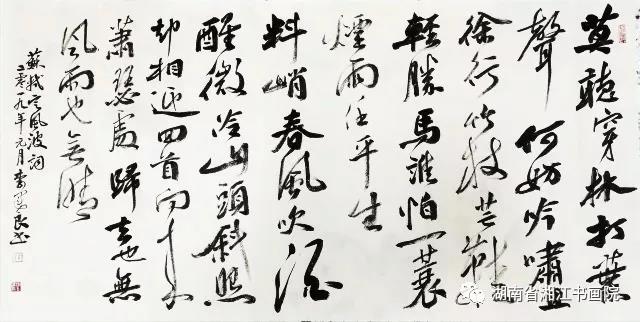 莫聽穿林打葉
聲何妨吟嘯且
徐行竹杖芒鞋
輕勝馬誰怕一蓑
煙雨任平生
料峭春風吹酒
醒微冷山頭斜照
却相迎回首向来
蕭瑟處歸去也無
風雨也無晴
蘇軾定風波詞
二零一九年元月
湖南省湘江书画院